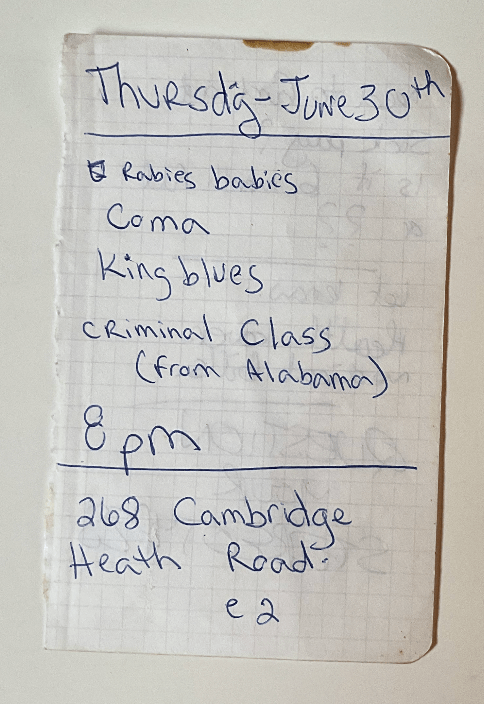 Thursday - June 30th
Rabies babies
Coma
King blues
Criminal Class
(from Alabama)
8 pm
268 Cambridge
Heath Road.
e2